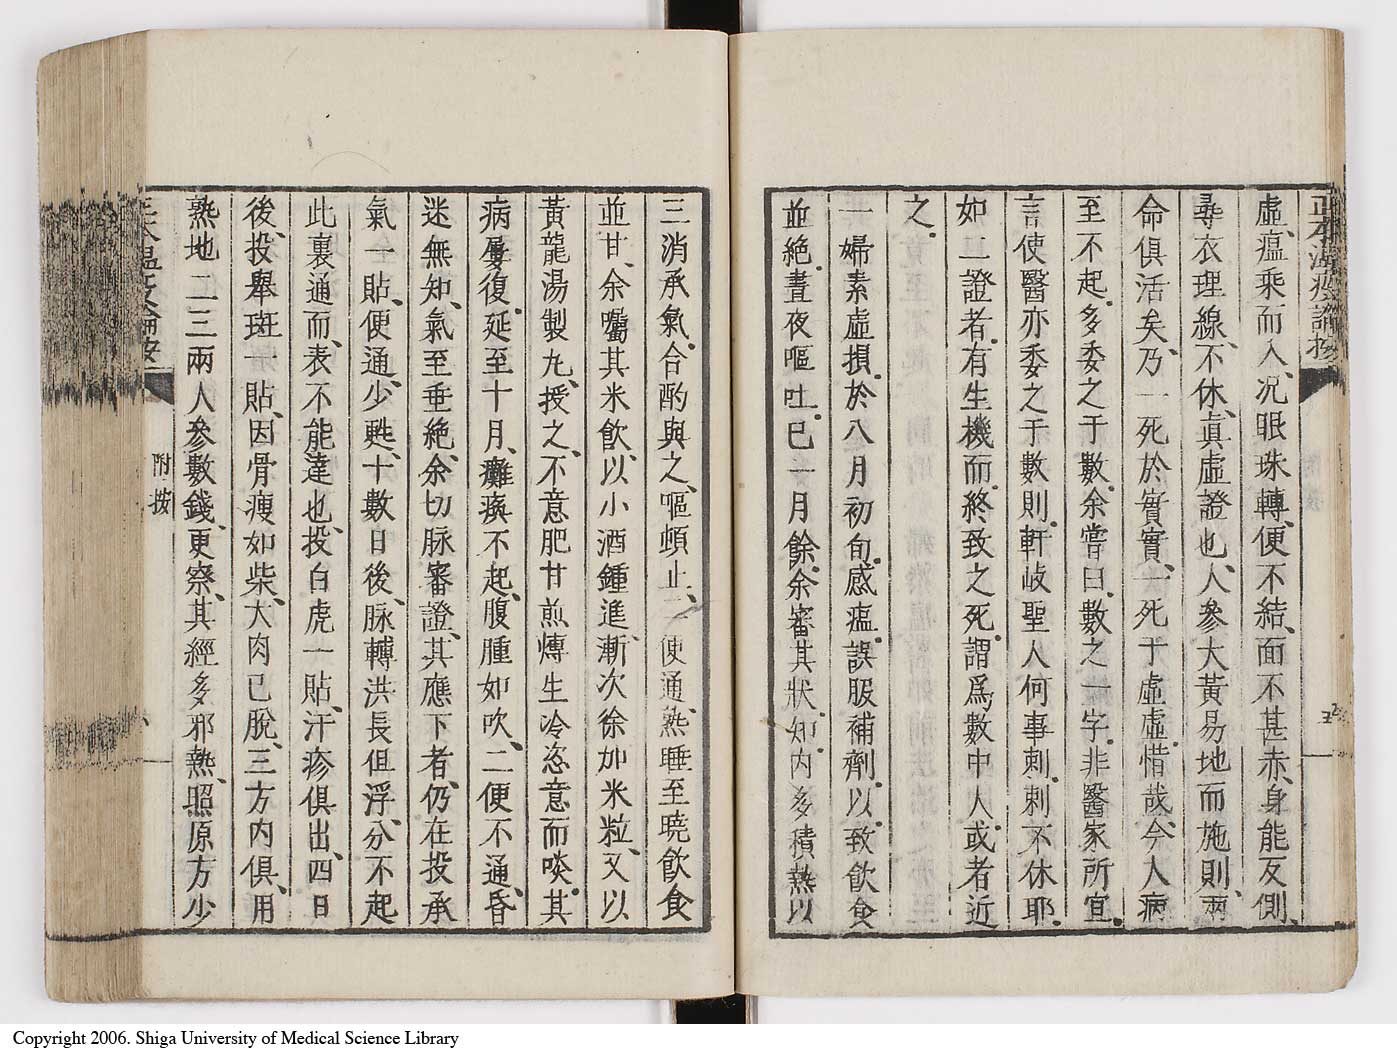 虛、瘟乘而入、况眼珠轉、便不結、面不甚赤、身能反側、
尋衣理線、不休、眞虛證也、人參大黃易地而施、則、兩
命俱活矣、乃一死於實實、一死于虛虛、惜哉、今人病
至不起、多委之于數、余嘗曰、數之一字、非醫家所宜
言、使醫亦委之于數則、軒岐聖人何事刺刺不休耶、
如一證者、有生機而、終致之死、謂爲數中人、或者近
之、
一婦素虛損、於八月初旬、感瘟、誤服補劑、以致飲食
並絕、晝夜嘔吐、已一月餘、余審其狀、知、內多積熱以
三消承氣、合酌與之、嘔頓止、二便通、熟睡至曉飲食
並甘、余囑其米飲、以小酒鍾進、漸次徐加米粒、又以
黃龍湯製丸、授之、不意肥甘煎煿生冷恣意而啖、其
病屢復、延至十月、癱瘓不起、腹腫如吹、二便不通、昏
迷無知、氣至垂絕、余切脉審證、其應下者、仍在投承
氣一貼、便通少甦、十數日後、脉轉洪長但浮、分不起
此裏通而、表不能達也、投白虎一貼、汗疹俱出、四日
後、投舉斑一貼、因骨瘦如柴、大肉已脫、三方內俱、用
熟地二三兩人參數錢、更察、其經多邪熱、照原方少
附按
Copyright 2006. Shiga University of Medical Science Library